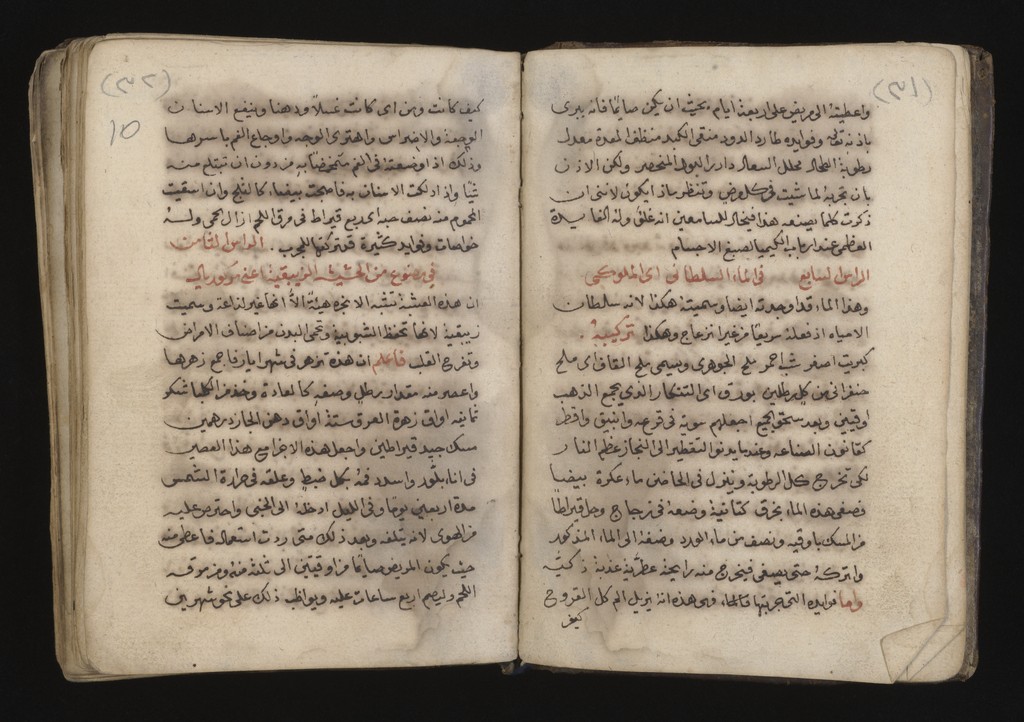 (٣١)
واعطيته الى مريض على اربعة ايام بحيث ان يكون صايمًا فانه يبرى
باذنه تعالى وفوايده طارد الدود منقى الكبد منظف المعدة معدل
رطوبة الطحال محلل السعال دارر البول المنحصر ولكن الاذن
بان تجربه لما شيت فى كل مرض وتنظر ماذا يكون لانني ان
ذكرت كلما يصنعه هذا فيخال للسامعين انه غلق وله الفايدة
العظمى عند ارباب الكيميا لصبغ الاجسام
الراس السابع فى الماء السلطانى اى الملوكى
وهذا الماء قد اوجدته ايضًا وسميته هكذا لانه سلطان
الامياه اذ فعله سريعًا من غير انزعاج وهكذا تركيبه .
كبريت اصفر شب احمر ملح الجوهرى ويسمى ملح القلفاى ملح
حنفرانى من كل رطلين بورق اى التنتكار الذى يجمع الذهب
اوقيتين وبعد سحق الجميع اجعلهم سوية فى قرعه وانبيق واقطر
كقانون الصناعه وعندما يدنو التقطير الى النجاز عظم النار
لكى تخرج كل الرطوبة وينزل فى الحاضن ماء عكرة بيضا
فصفى هذه الماء بخرق كتانية وضعه فى زجاج وحل قيراطًا
من المسك باوقيه ونصف من ماء الورد وضفه الى الماء المذكور
واتركه حتى يصفى فيخرج منه رايحة عطرية عذبة ذكيّه
واما فوايده التى جربتها قالها، فهى هذه انه يزيل الم كل القروح
كيف
(٣٢)
10
كيف كانت ومن اى كانت غسلًا ودهنا وينفع الاسنان
الوجعة والاضراس واهترى الوجه واوجاع الفم باسرها
وذلك اذا وضعته فى الفم متمضمضًا به من دون ان تبتلع منه
شيًا واذا دلكت الاسنان به فاصبحت بيضا كالثلج وان اسقيت
المحموم منه نصف حبه اى ربع قيراط فى مرق اللحم ازال الحمى وله
خواصات وفوايد كثيرة قد تركتها للمجرب . الراس الثامن
فى مصنوع من الحشيشه الزيبقية اعنى مركوريالى
ان هذه العشبة تشبه الانجره هيئةً الاّ انها غير لذاعة وسميت
زيبقية لانها تحفظ الشبوبية وتحمى البدن من اصناف الامراض
وتفرح القلب فاعلم ان هذه تزهر فى شهر ايار فاجمع زهرها
واعصر منه مقدار رطل وصفه كالعادة وخذ من الكلباشكو
ثمانيه اواق زهرة العرق ستة اواق دهن الجاز درهمين
مسك جيد قيراطين واجعل هذه الاجزا مع هذا العصير
فى اناء بلّور واسدد فمه بكل ضبط وعلقه فى حرارة الشمس
مدة اربعين يومًا وفى الليل ادخله الى المخبى واحترص عليه
من الهوى لانه يتلفه وبعد ذلك متى ردت استعماله فاعطى منه
حيث يكون المريض صايمًا من اوقيتين الى ثلثة منه ومن مرقه
اللحم وليصم اربع ساعات عليه ويواظب ذلك على نحو شهرين